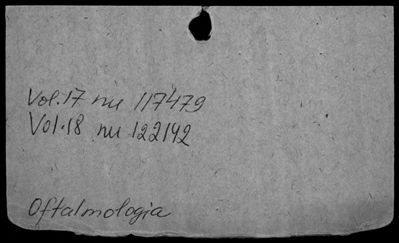 Vol.17 nu 117479
Vol.18 nu 122142
Oftalmologia